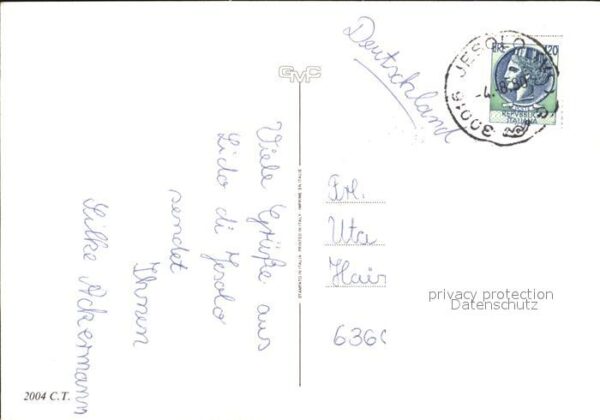 Deutschland
GMC
LIRE 120
30016 JESOLO
-4.8.80
REPUBBLICA
ITALIANA
Viele Grüße aus
Lido di Jesolo
sendet
Ihnen
Silke Ackermann
STAMPATO IN ITALIA PRINTED IN ITALY IMPRIME EN ITALIE
Frl.
Uta
Hair
636
privacy protection
Datenschutz
2004 C.T.